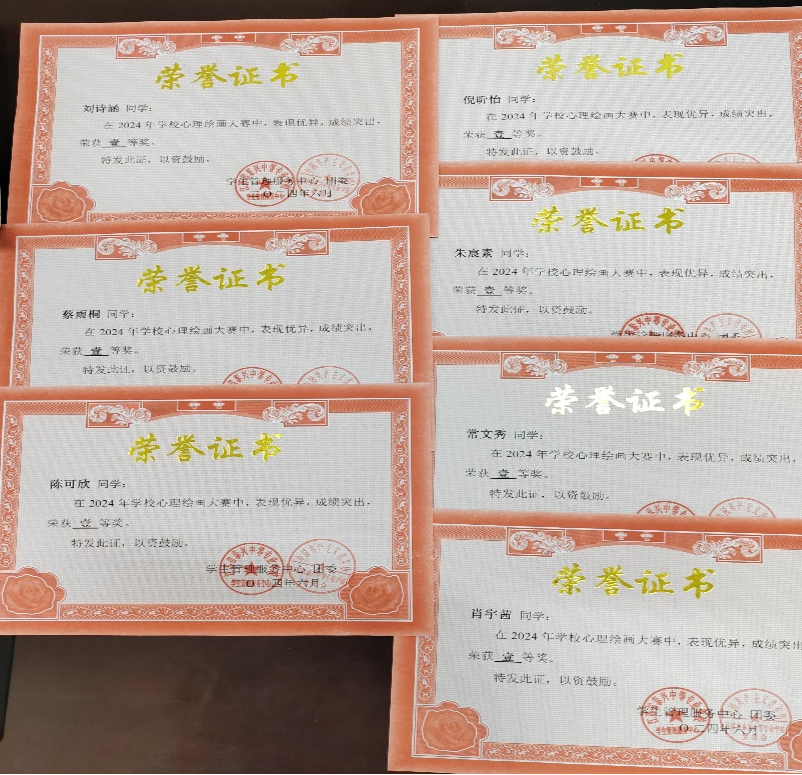 荣誉证书
刘诗涵 同学：
在 2024 年学校心理绘画大赛中，表现优异，成绩突出，
荣获 壹 等奖。
特发此证，以资鼓励。
学生管理服务中心 团委
二〇二四年六月
荣誉证书
蔡雨桐 同学：
在 2024 年学校心理绘画大赛中，表现优异，成绩突出，
荣获 壹 等奖。
特发此证，以资鼓励。
荣誉证书
陈可欣 同学：
在 2024 年学校心理绘画大赛中，表现优异，成绩突出，
荣获 壹 等奖。
特发此证，以资鼓励。
学生管理服务中心 团委
二〇二四年六月
荣誉证书
倪昕怡 同学：
在 2024 年学校心理绘画大赛中，表现优异，成绩突出，
荣获 壹 等奖。
特发此证，以资鼓励。
荣誉证书
朱宸素 同学：
在 2024 年学校心理绘画大赛中，表现优异，成绩突出，
荣获 壹 等奖。
特发此证，以资鼓励。
荣誉证书
常文秀 同学：
在 2024 年学校心理绘画大赛中，表现优异，成绩突出，
荣获 壹 等奖。
特发此证，以资鼓励。
荣誉证书
肖宇茜 同学：
在 2024 年学校心理绘画大赛中，表现优异，成绩突出
荣获 壹 等奖。
特发此证，以资鼓励。
学生管理服务中心 团委
二〇二四年六月